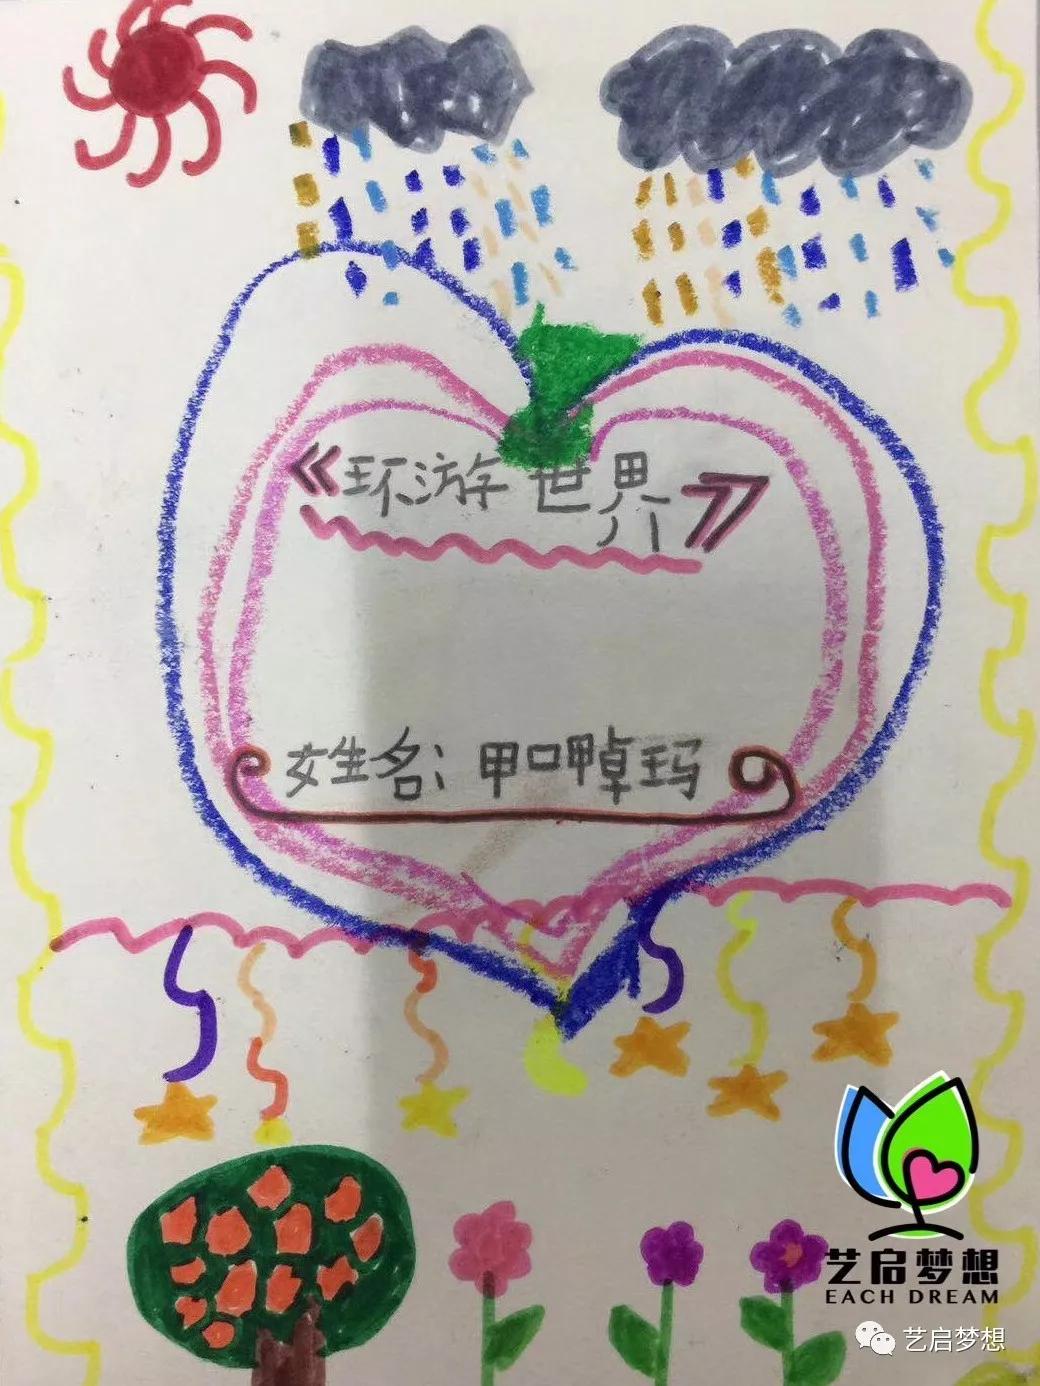 《环游世界》
姓名：甲口呷卓玛
艺启梦想
EACH DREAM
艺启梦想